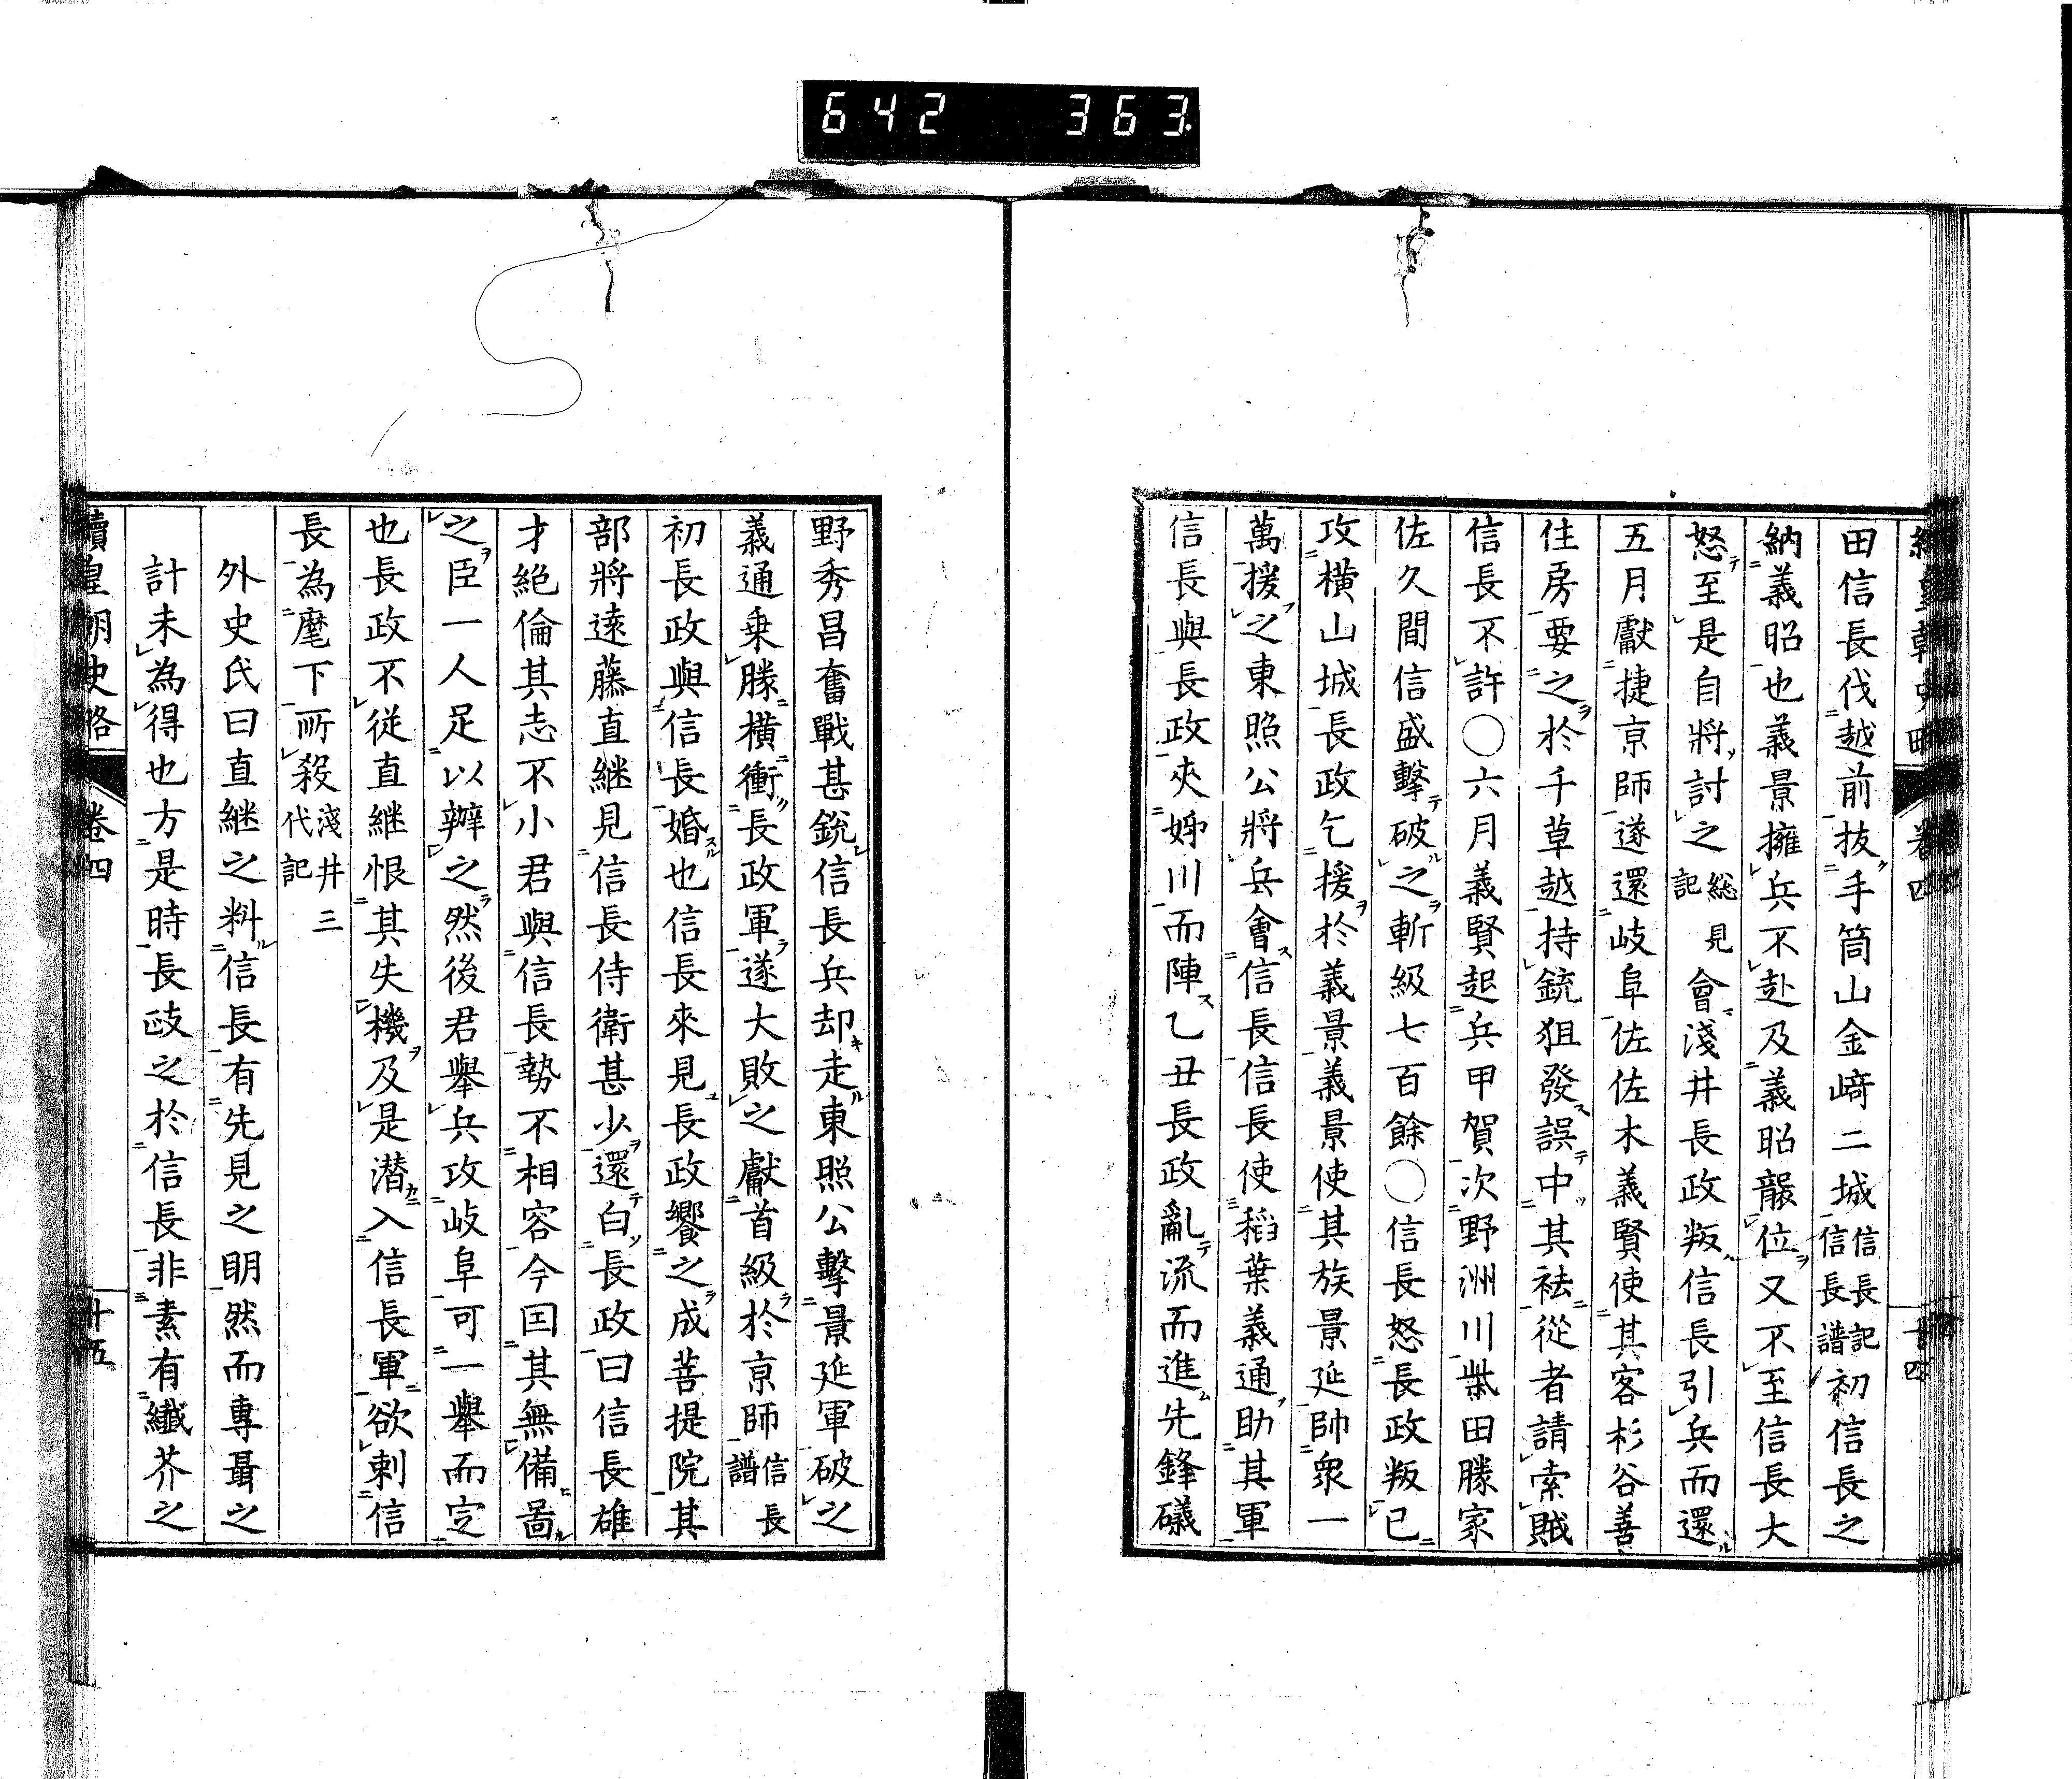 642 363
續皇朝史略 卷四 十四
田信長伐越前拔手筒山金﨑二城信長記信長譜初信長之
納義昭也義景擁兵不赴及義昭襲位又不至信長大
怒至是自將討之總見記會淺井長政叛信長引兵而還
五月獻捷京師遂還岐阜佐佐木義賢使其客杉谷善
住房要之於千草越持銃狙發誤中其袪從者請索賊
信長不許○六月義賢起兵甲賀次野洲川柴田勝家
佐久間信盛擊破之斬級七百餘○信長怒長政叛已
攻橫山城長政乞援於義景義景使其族景延帥衆一
萬援之東照公將兵會信長信長使稻葉義通助其軍
信長與長政夾姉川而陣乙丑長政亂流而進先鋒礒
野秀昌奮戰甚銳信長兵却走東照公擊景延軍破之
義通乘勝橫衝長政軍遂大敗之獻首級於京師信長譜
初長政與信長婚也信長來見長政饗之成菩提院其
部將遠藤直継見信長侍衛甚少還白長政曰信長雄
才絕倫其志不小君與信長勢不相容今因其無備圖
之臣一人足以辦之然後君舉兵攻岐阜可一舉而定
也長政不從直継恨其失機及是潜入信長軍欲刺信
長為麾下所殺淺井三代記
外史氏曰直継之料信長有先見之明然而專聶之
計未為得也方是時長政之於信長非素有纖芥之
續皇朝史略 卷四 十五